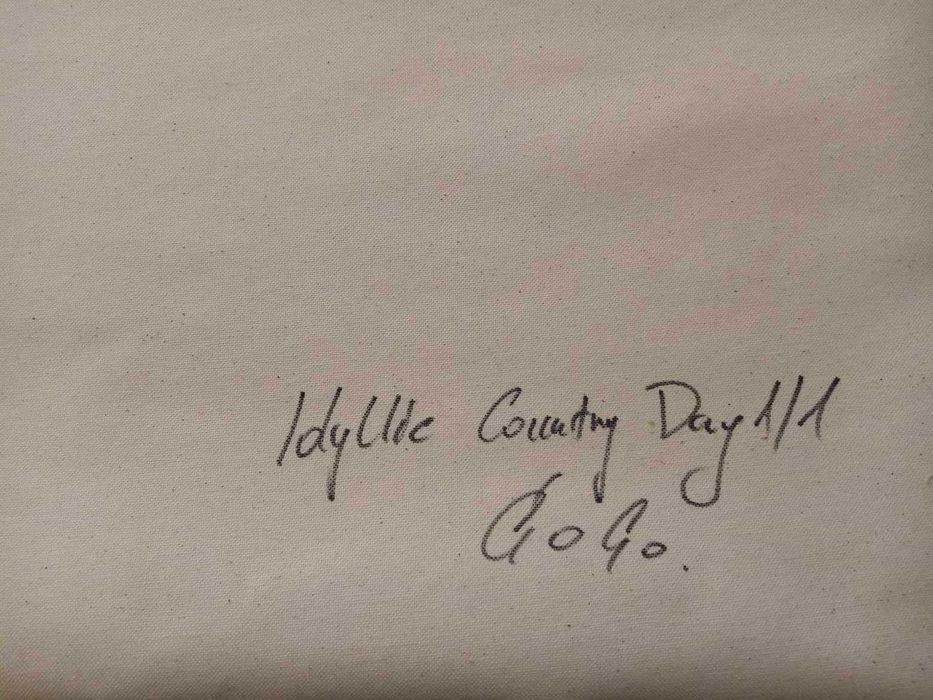 Idyllic Country Day 1/1
GoGo.